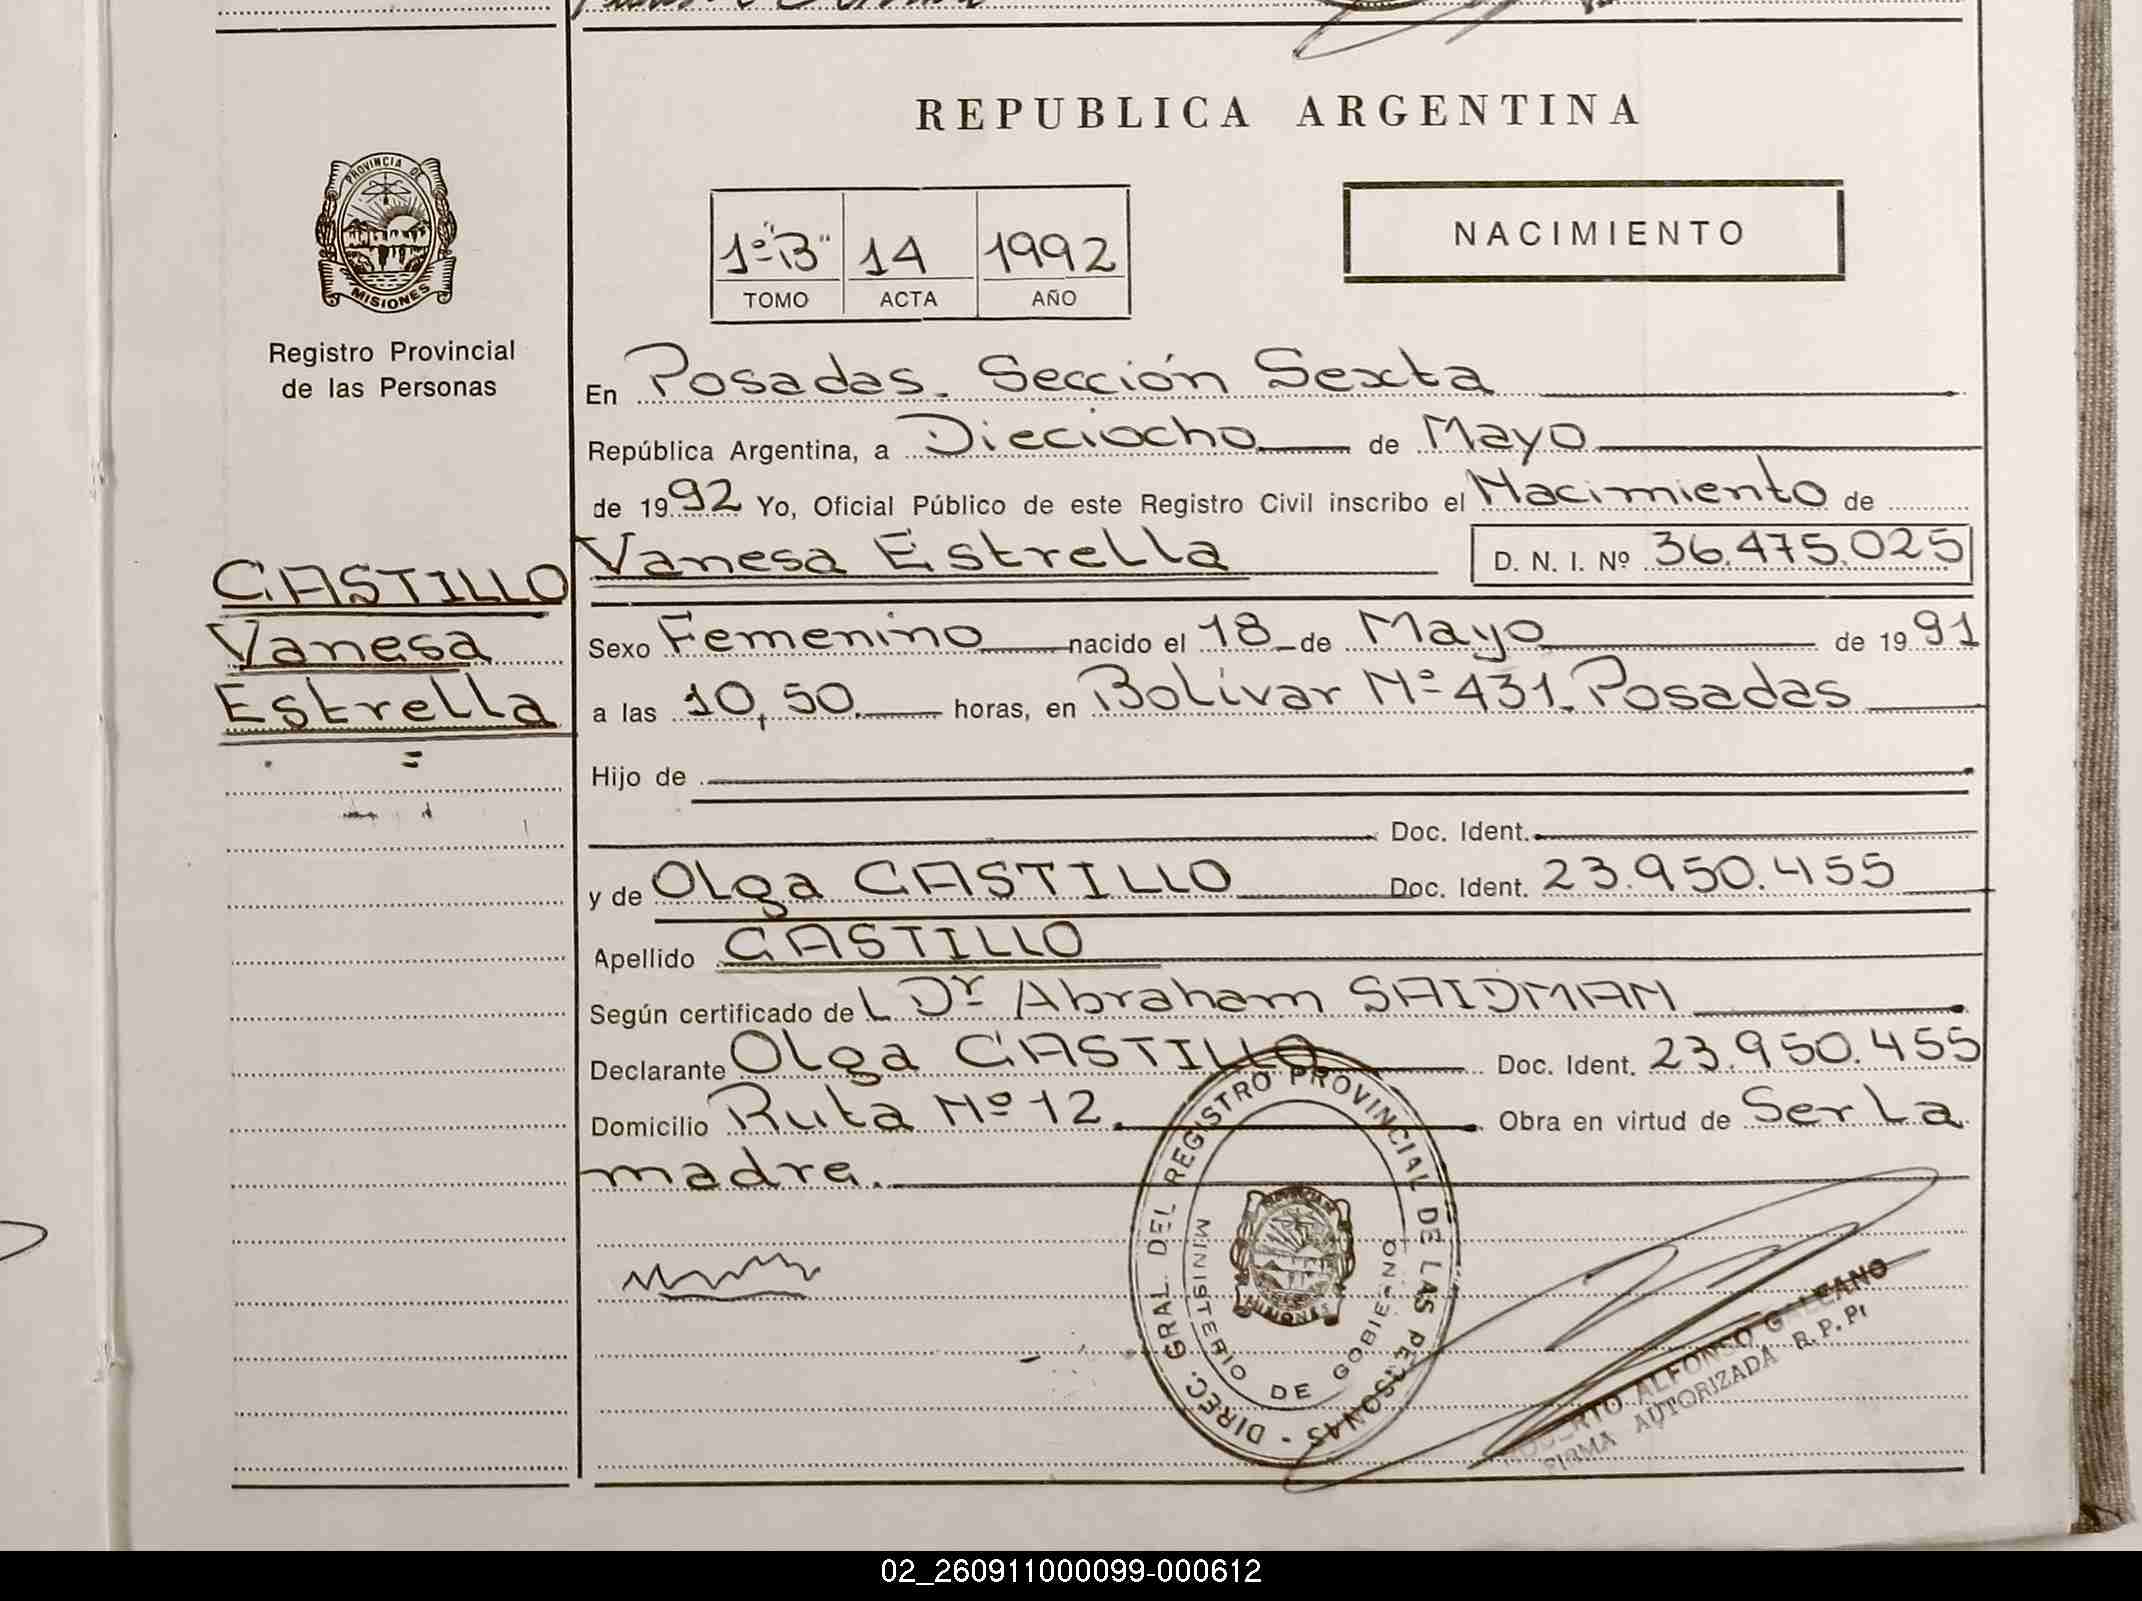 REPUBLICA ARGENTINA
PROVINCIA DE
MISIONES
Registro Provincial
de las Personas
1º "B" 14 1992
TOMO ACTA AÑO
NACIMIENTO
En Posadas. Sección Sexta
República Argentina, a Dieciocho de Mayo
de 1992 Yo, Oficial Público de este Registro Civil inscribo el Nacimiento de
Vanesa Estrella D. N. I. Nº 36.475.025
CASTILLO
Vanesa
Estrella
=
Sexo Femenino nacido el 18 de Mayo de 1991
a las 10,50 horas, en Bolívar Nº 431. Posadas
Hijo de
Doc. Ident.
y de Olga CASTILLO Doc. Ident. 23.950.455
Apellido CASTILLO
Según certificado de L Dr Abraham SAIDMAN
Declarante Olga CASTILLO Doc. Ident. 23.950.455
Domicilio Ruta Nº 12. Obra en virtud de Ser La
madre.
DIREC. GRAL. DEL REGISTRO PROVINCIAL DE LAS PERSONAS -
MINISTERIO DE GOBIERNO
MISIONES
ALFONSO GALEANO
FIRMA AUTORIZADA R. P. P.
02_260911000099-000612